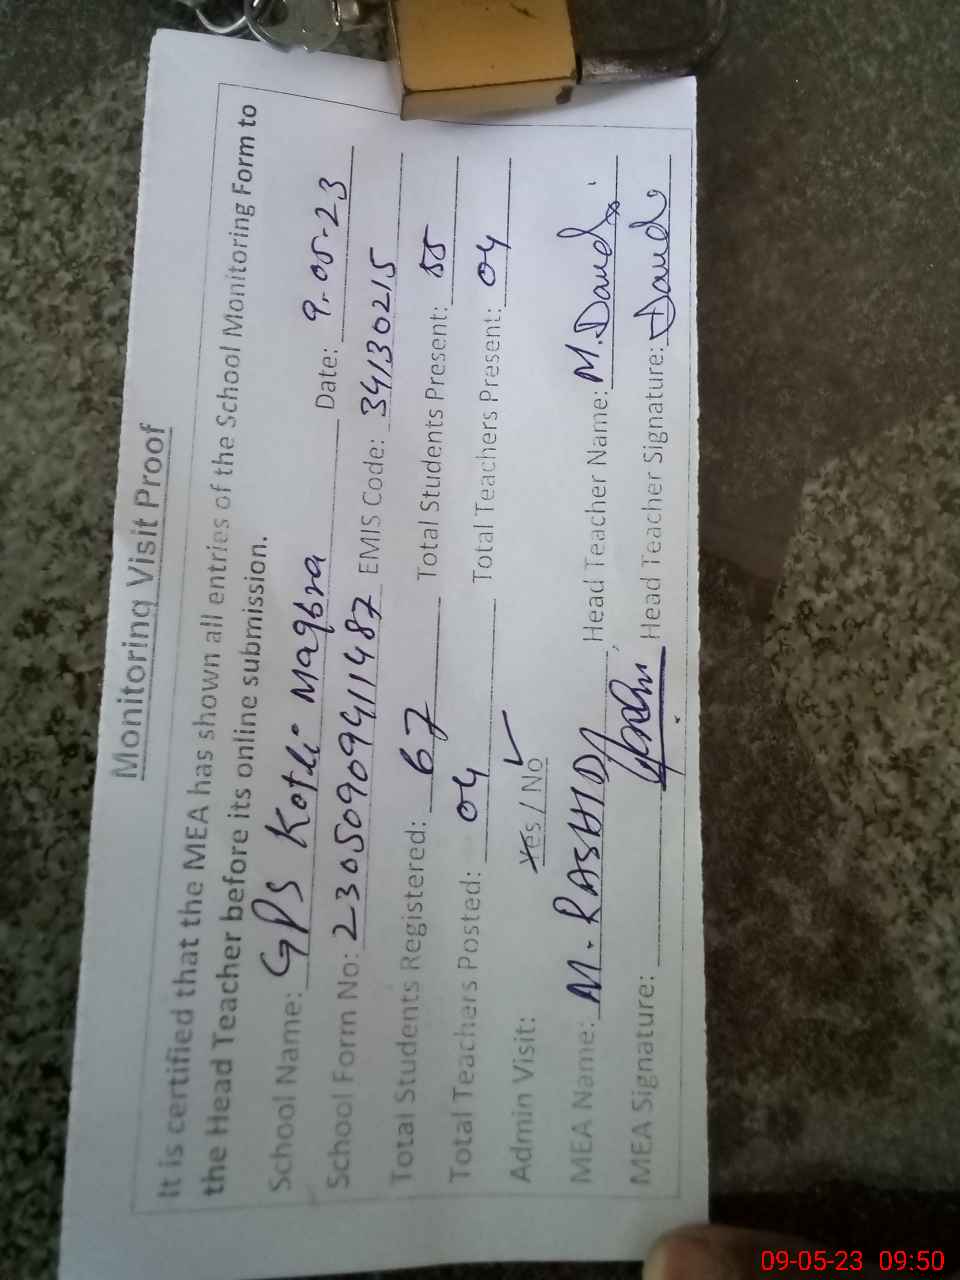 Monitoring Visit Proof
It is certified that the MEA has shown all entries of the School Monitoring Form to
the Head Teacher before its online submission.
School Name: GPS Kotli Maqbra Date: 9-05-23
School Form No: 230509094111487 EMIS Code: 34130215
Total Students Registered: 67 Total Students Present: 55
Total Teachers Posted: 04 Total Teachers Present: 04
Admin Visit: Yes / No ✓
MEA Name: M. RASHID Head Teacher Name: M. Daud
MEA Signature: Head Teacher Signature: Daud
09-05-23 09:50